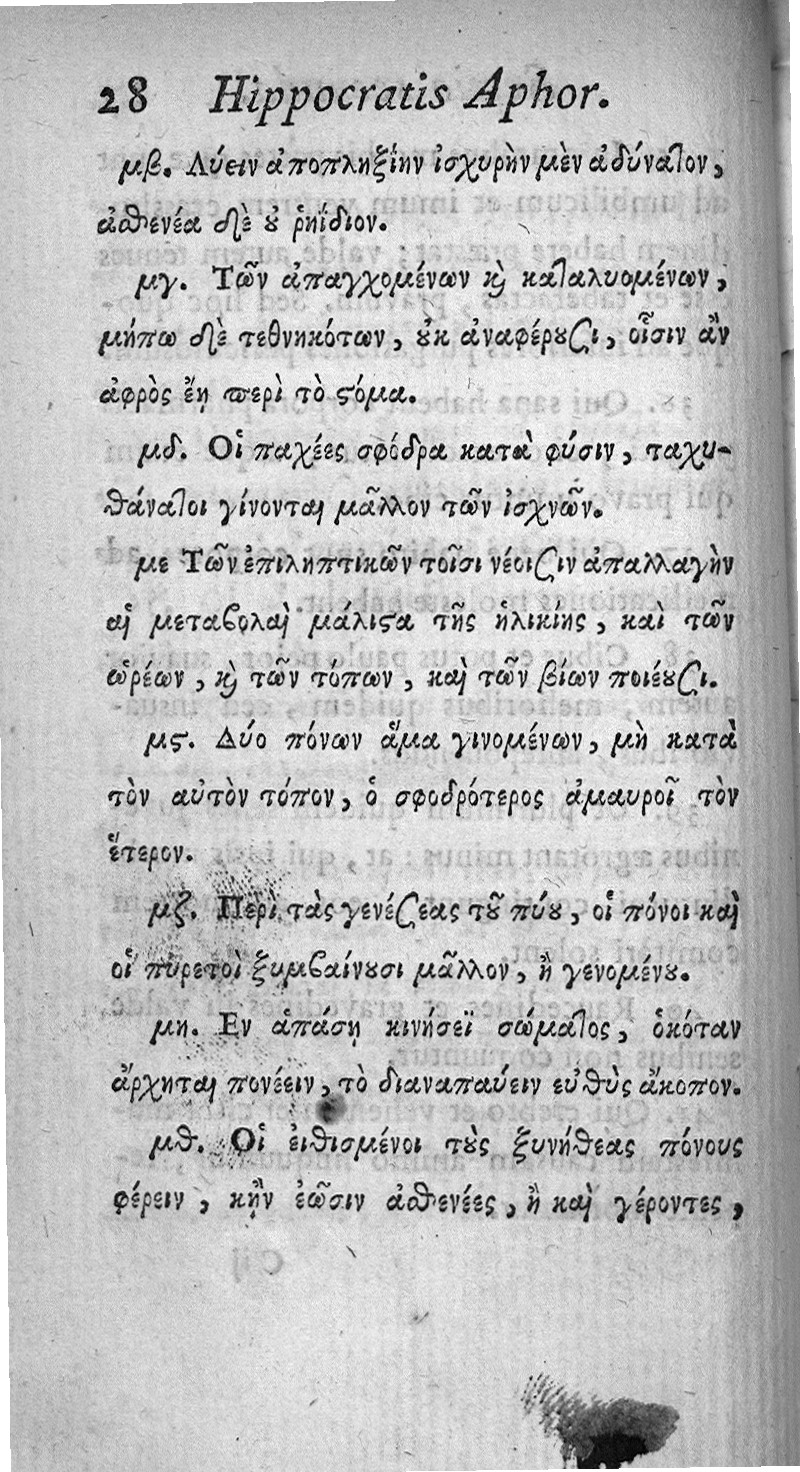 28 Hippocratis Aphor.
μβ. Λύειν ἀποπληξίην ἰσχυρὴν μὲν ἀδύνατον,
ἀσθενέα δὲ ȣ ῥηΐδιον.
μγ. Τῶν ἀπαγχομένων ϗ̀ καταλυομένων,
μήπω δὲ τεθνηκότων, ȣκ ἀναφέρȣσι, οἷσιν ἂν
ἀφρὸς ἔῃ περὶ τὸ ϛόμα.
μδ. Οἱ παχέες σφόδρα κατὰ φύσιν, ταχυ-
θάνατοι γίνονται μᾶλλον τῶν ἰσχνῶν.
με Τῶν ἐπιληπτικῶν τοῖσι νέοισιν ἀπαλλαγὴν
αἱ μεταβολαὶ μάλιϛα τῆς ἡλικίης, καὶ τῶν
ὡρέων, ϗ̀ τῶν τόπων, καὶ τῶν βίων ποιέȣσι.
μϛ. Δύο πόνων ἅμα γινομένων, μὴ κατὰ
τὸν αὐτὸν τόπον, ὁ σφοδρότερος ἀμαυροῖ τὸν
ἕτερον.
μζ. Περὶ τὰς γενέσεας τȣ͂ πύȣ, οἱ πόνοι καὶ
οἱ πυρετοὶ ξυμβαίνȣσι μᾶλλον, ἢ γενομένȣ.
μη. Εν ἁπάσῃ κινήσεϊ σώματος, ὁκόταν
ἄρχηται πονέειν, τὸ διαναπαύειν εὐθὺς ἄκοπον.
μθ. Οἱ εἰθισμένοι τȣ̀ς ξυνήθεας πόνους
φέρειν, κἢν ἐῶσιν ἀσθενέες, ἢ καὶ γέροντες,